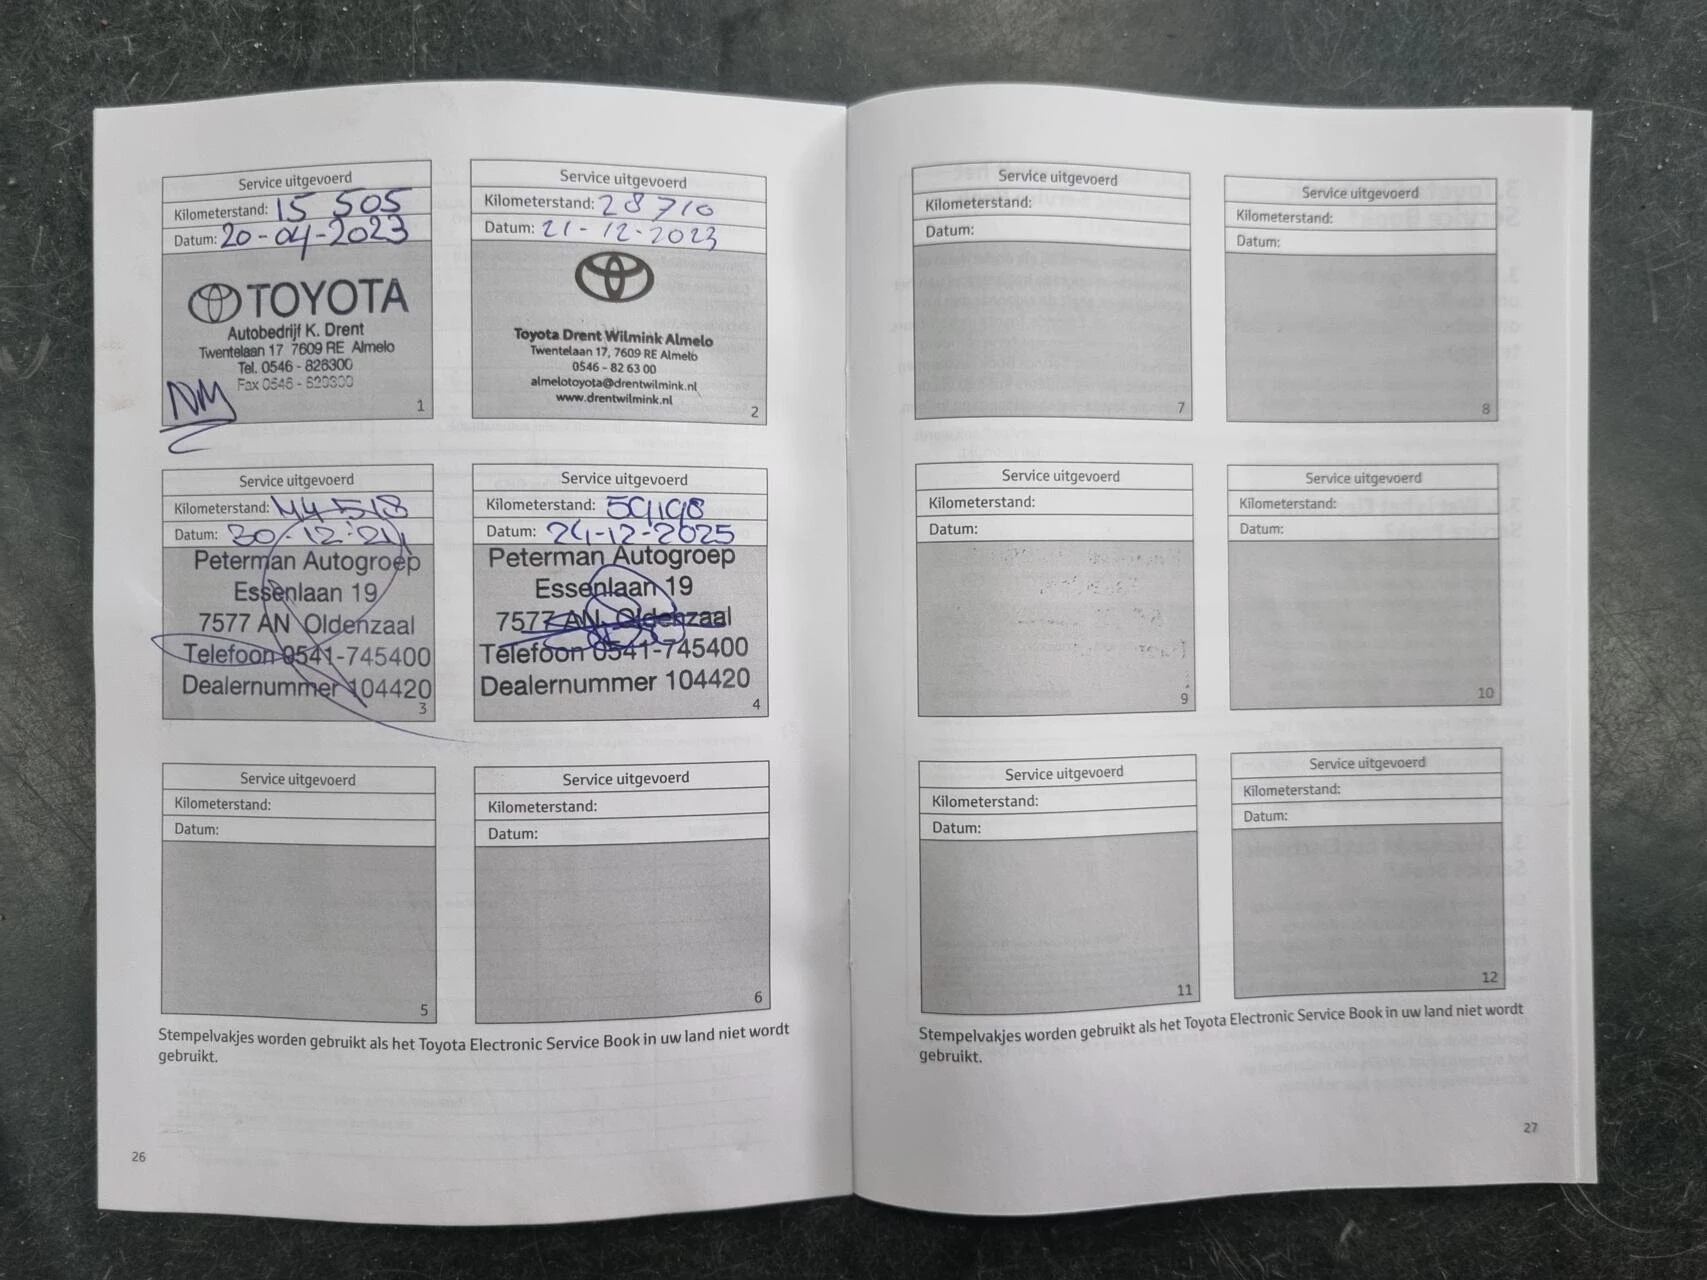 Service uitgevoerd
Kilometerstand: 15 505
Datum: 20-04-2023
TOYOTA
Autobedrijf K. Drent
Twentelaan 17 7609 RE Almelo
Tel. 0546 - 826300
Fax 0546 - 820300
NM
1
Service uitgevoerd
Kilometerstand: 28710
Datum: 21-12-2023
Toyota Drent Wilmink Almelo
Twentelaan 17, 7609 RE Almelo
0546 - 82 63 00
almelotoyota@drentwilmink.nl
www.drentwilmink.nl
2
Service uitgevoerd
Kilometerstand: 44518
Datum: 30-12-
Peterman Autogroep
Essenlaan 19
7577 AN Oldenzaal
Telefoon 0541-745400
Dealernummer 104420
3
Service uitgevoerd
Kilometerstand:
Datum: 24-12-2025
Peterman Autogroep
Essenlaan 19
7577 AN Oldenzaal
Telefoon 0541-745400
Dealernummer 104420
4
Service uitgevoerd
Kilometerstand:
Datum:
5
Service uitgevoerd
Kilometerstand:
Datum:
6
Stempelvakjes worden gebruikt als het Toyota Electronic Service Book in uw land niet wordt
gebruikt.
26
Service uitgevoerd
Kilometerstand:
Datum:
7
Service uitgevoerd
Kilometerstand:
Datum:
8
Service uitgevoerd
Kilometerstand:
Datum:
9
Service uitgevoerd
Kilometerstand:
Datum:
10
Service uitgevoerd
Kilometerstand:
Datum:
11
Service uitgevoerd
Kilometerstand:
Datum:
12
Stempelvakjes worden gebruikt als het Toyota Electronic Service Book in uw land niet wordt
gebruikt.
27